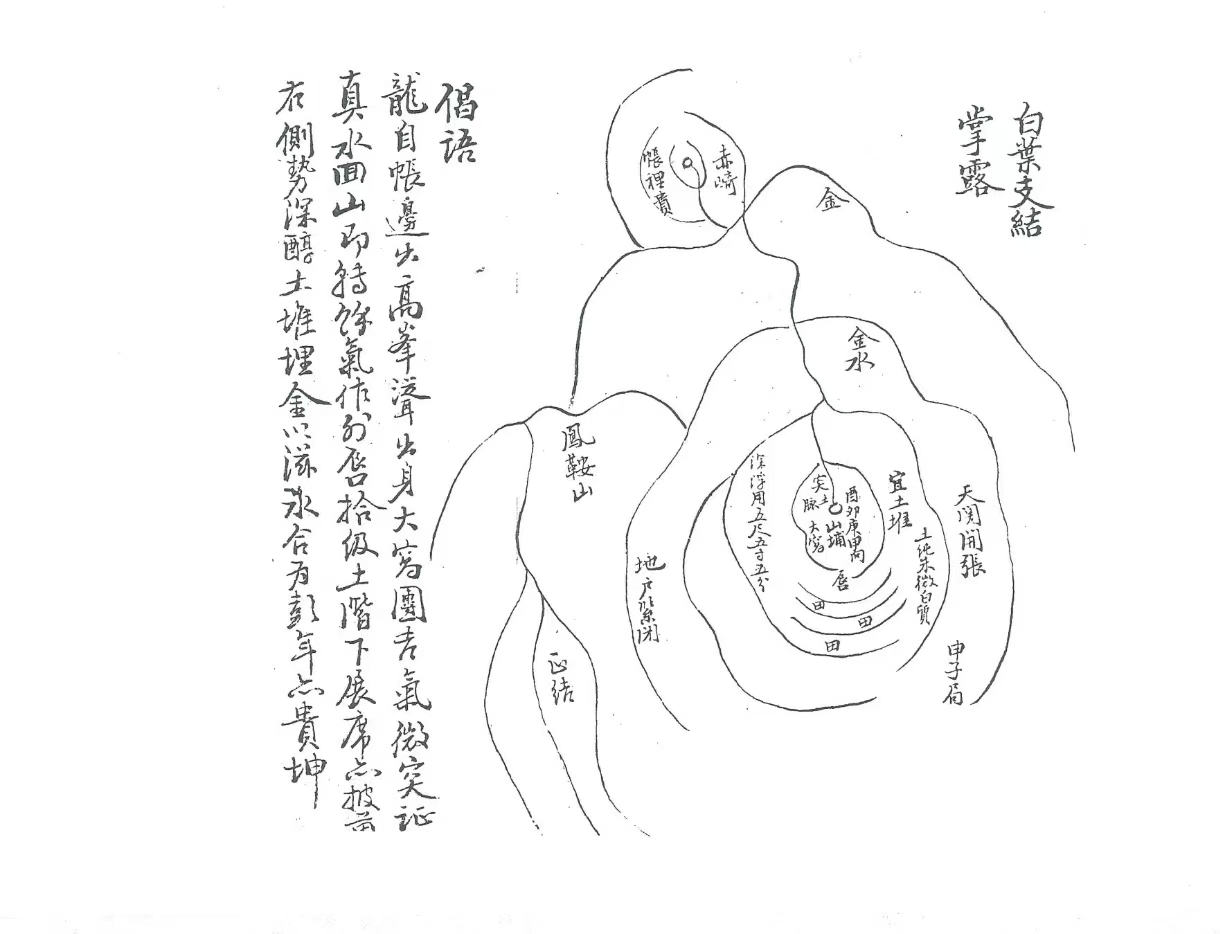 白葉支結
掌露
赤崎
帳裡貴
金
金水
鳳鞍山
天関開張
宜土堆
土純朱微白質
酉卯庚甲向
山埔
突土
脉大窩
深浮用五尺五寸五分
唇
田
田
田
地户緊閉
申子局
正結
偈語
龍自帳邊出高峯聳出身大窩團吉氣微突証
真水回山即轉餘氣作外唇拾级土階下展席亦披
右側勢深醇土堆埋金以滋水合為彭年亦貴坤